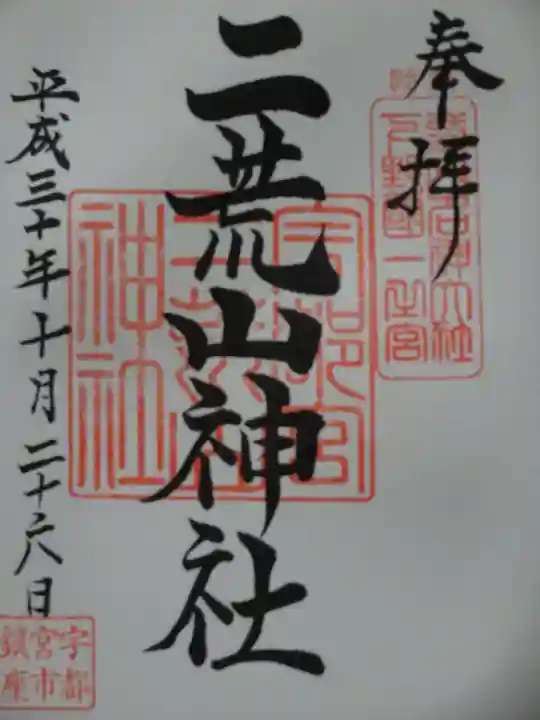 奉拝
下野國一之宮
二荒山神社
宇都宮
二荒山
神社
平成三十年十月二十六日
宇都
宮市
鎮座